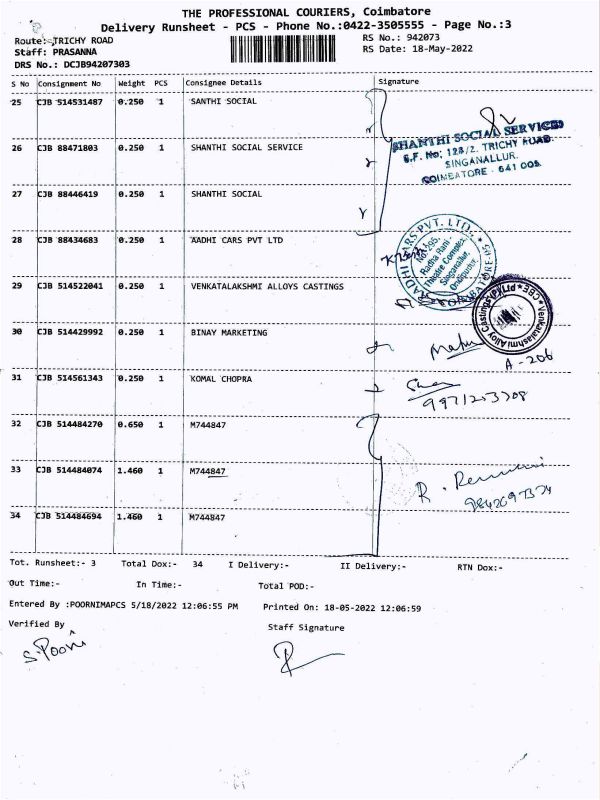 THE PROFESSIONAL COURIERS, Coimbatore
Delivery Runsheet - PCS - Phone No.:0422-3505555 - Page No.:3
Route: TRICHY ROAD RS No.: 942073
Staff: PRASANNA RS Date: 18-May-2022
DRS No.: DCJB94207303
S No Consignment No Weight PCS Consignee Details Signature
25 CJB 514531487 0.250 1 SANTHI SOCIAL
26 CJB 88471803 0.250 1 SHANTHI SOCIAL SERVICE
SHANTHI SOCIAL SERVICES
S.F. No: 128/2. TRICHY ROAD
SINGANALLUR.
COIMBATORE - 641 005
27 CJB 88446419 0.250 1 SHANTHI SOCIAL
28 CJB 88434683 0.250 1 AADHI CARS PVT LTD
AADHI CARS PVT. LTD. COIMBATORE-45
No:295,
Radha Rani
Theatre Complex,
Singanallur,
Ondipudur.
29 CJB 514522041 0.250 1 VENKATALAKSHMI ALLOYS CASTINGS
Venkatalashmi Alloy Castings (P) Ltd CBE
30 CJB 514429992 0.250 1 BINAY MARKETING
A-206
31 CJB 514561343 0.250 1 KOMAL CHOPRA
9971253708
32 CJB 514484270 0.650 1 M744847
33 CJB 514484074 1.460 1 M744847
34 CJB 514484694 1.460 1 M744847
Tot. Runsheet:- 3 Total Dox:- 34 I Delivery:- II Delivery:- RTN Dox:-
Out Time:- In Time:- Total POD:-
Entered By :POORNIMAPCS 5/18/2022 12:06:55 PM Printed On: 18-05-2022 12:06:59
Verified By Staff Signature
S.Poorni